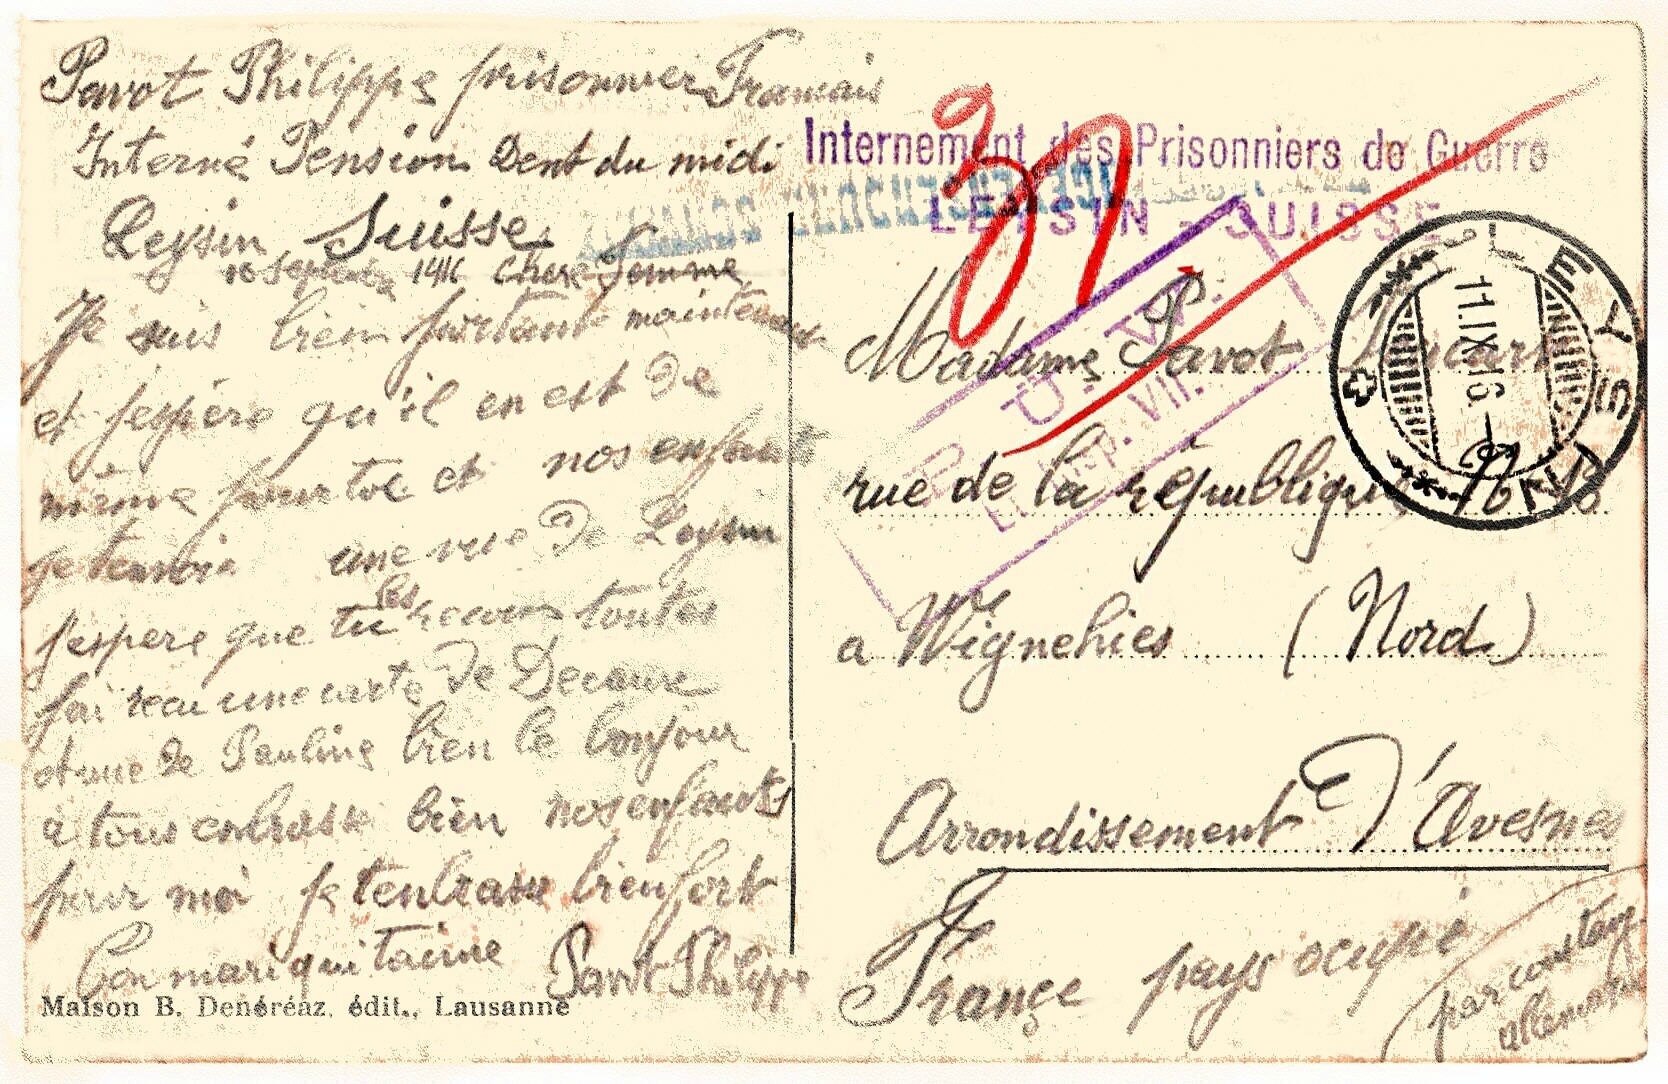 Pavot Philippe prisonnier Francais
Interné Pension Dent du midi
Leysin Suisse
10 Septembre 1916 chere femme
Je suis bien portant maintenant
et j'espère qu'il en est de
même pour toi et nos enfants
je t'envoie une vue de Leysin
j'espere que tu les recevras toutes
j'ai recu une carte de
et une de Pauline bien le bonjour
à tous embrasse bien nos enfants
pour moi je t'embrasse bien fort
ton mari qui t'aime Pavot Philippe
Maison B. Denéréaz, édit., Lausanne
37
Internement des Prisonniers de Guerre
LEYSIN - SUISSE
LEYSIN
11.IX.16.-9
P. Ü. W.
Insp. VII.
Madame Pavot
rue de la république No
a Wignehies (Nord)
Arrondissement D'Avesnes
France pays ocupé
par